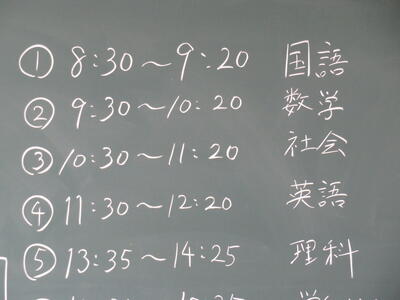 ① 8:30～9:20 国語
② 9:30～10:20 数学
③ 10:30～11:20 社会
④ 11:30～12:20 英語
⑤ 13:35～14:25 理科